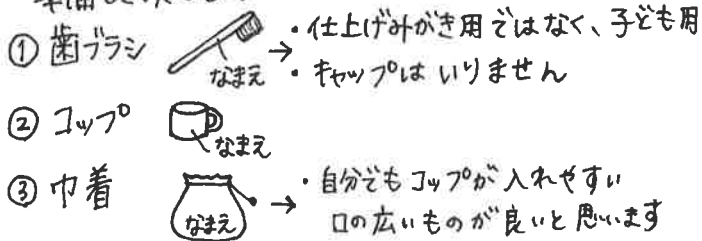 ① 歯ブラシ
なまえ
→ ・仕上げみがき用ではなく、子ども用
・キャップはいりません
② コップ
なまえ
③ 巾着
なまえ
→ ・自分でもコップが入れやすい
口の広いものが良いと思います